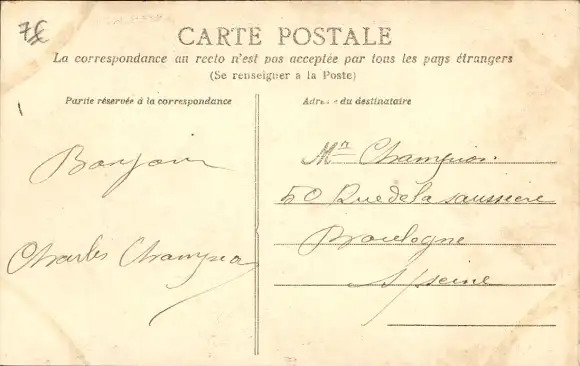 7€
CARTE POSTALE
La correspondance au recto n'est pas acceptée par tous les pays étrangers
(Se renseigner a la Poste)
Partie réservée à la correspondance
Bonjour
Charles Champion
Adresse du destinataire
Mr Champion
50 Rue de la saussiere
Boulogne
s/seine